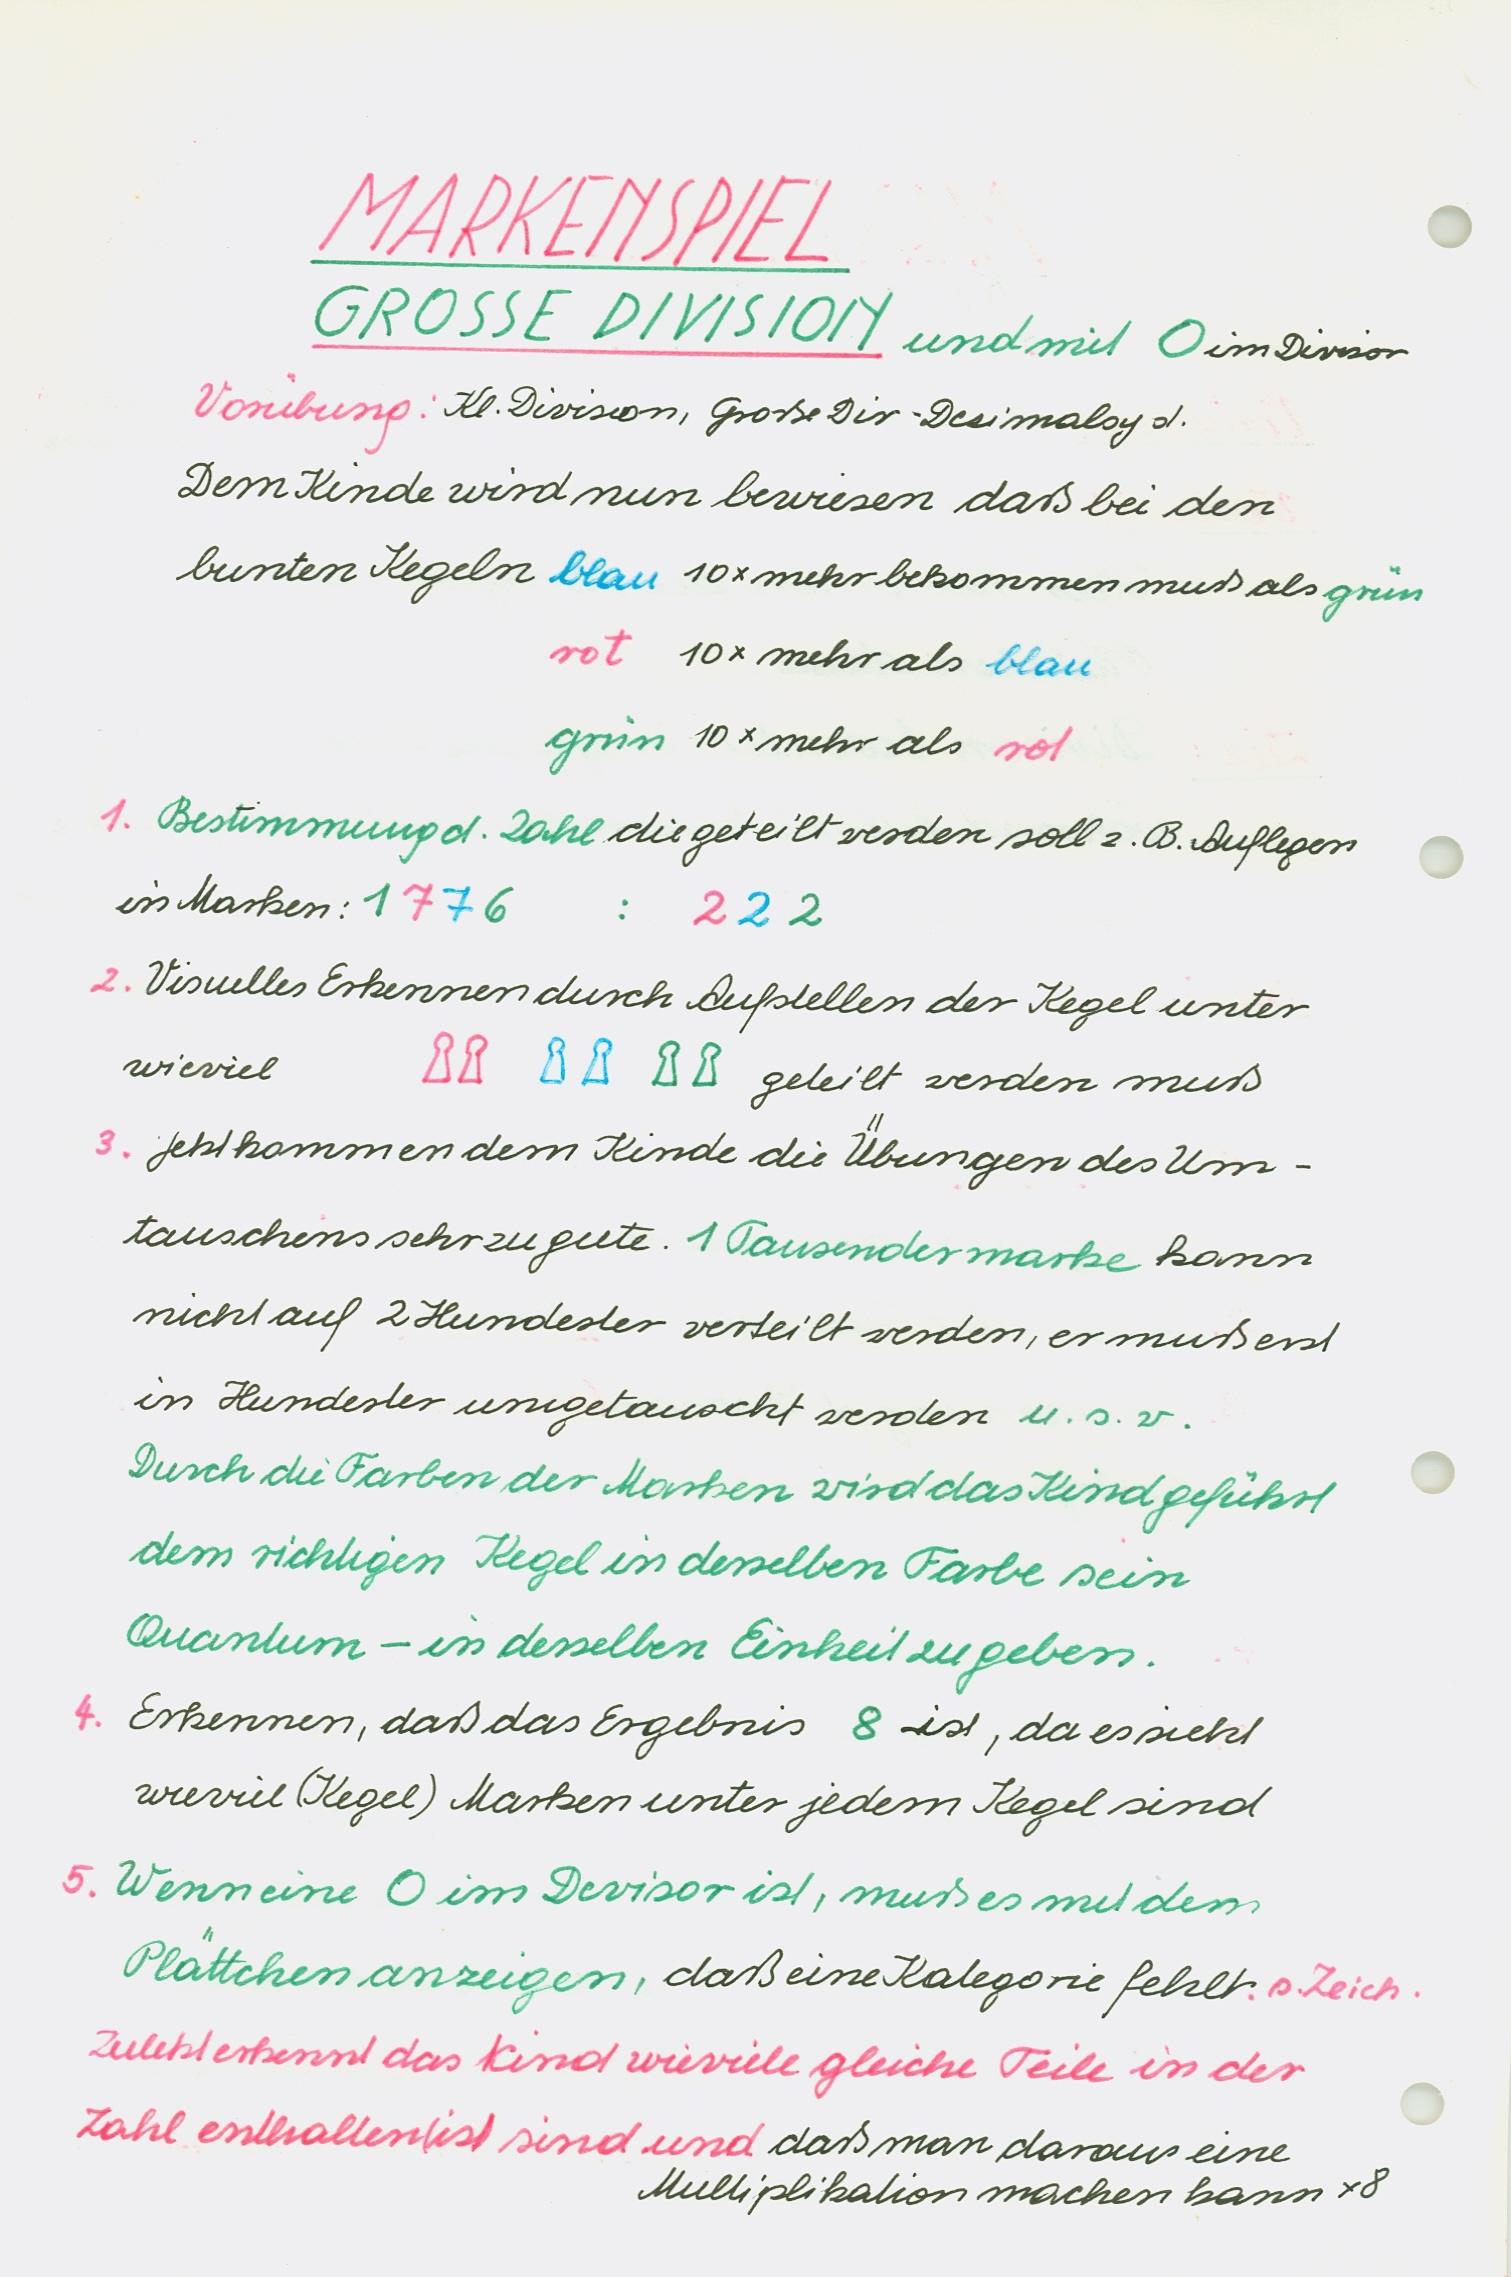 MARKENSPIEL
GROSSE DIVISION und mit 0 im Divisor
Vorübung: Kl. Division, Große Div - Dezimalsyst.
Dem Kinde wird nun bewiesen daß bei den
bunten Kegeln blau 10x mehr bekommen muß als grün
rot 10x mehr als blau
grün 10x mehr als rot
1. Bestimmung d. Zahl die geteilt werden soll z. B. Auflegen
in Marken: 1 7 7 6 : 2 2 2
2. Visuelles Erkennen durch Aufstellen der Kegel unter
wieviel geteilt werden muß
3. Jetzt kommen dem Kinde die Übungen des Um -
tauschens sehr zu gute. 1 Tausendermarke kann
nicht auf 2 Hunderter verteilt werden, er muß erst
in Hunderter umgetauscht werden u. s. w.
Durch die Farben der Marken wird das Kind geführt
dem richtigen Kegel in derselben Farbe sein
Quantum – in derselben Einheit zu geben.
4. Erkennen, daß das Ergebnis 8 ist, da es sieht
wieviel (Kegel) Marken unter jedem Kegel sind
5. Wenn eine 0 im Devisor ist, muß es mit dem
Plättchen anzeigen, daß eine Kategorie fehlt. s. Zeich.
Zuletzt erkennt das Kind wieviele gleiche Teile in der
Zahl enthalten (ist) sind und daß man daraus eine
Multiplikation machen kann x8